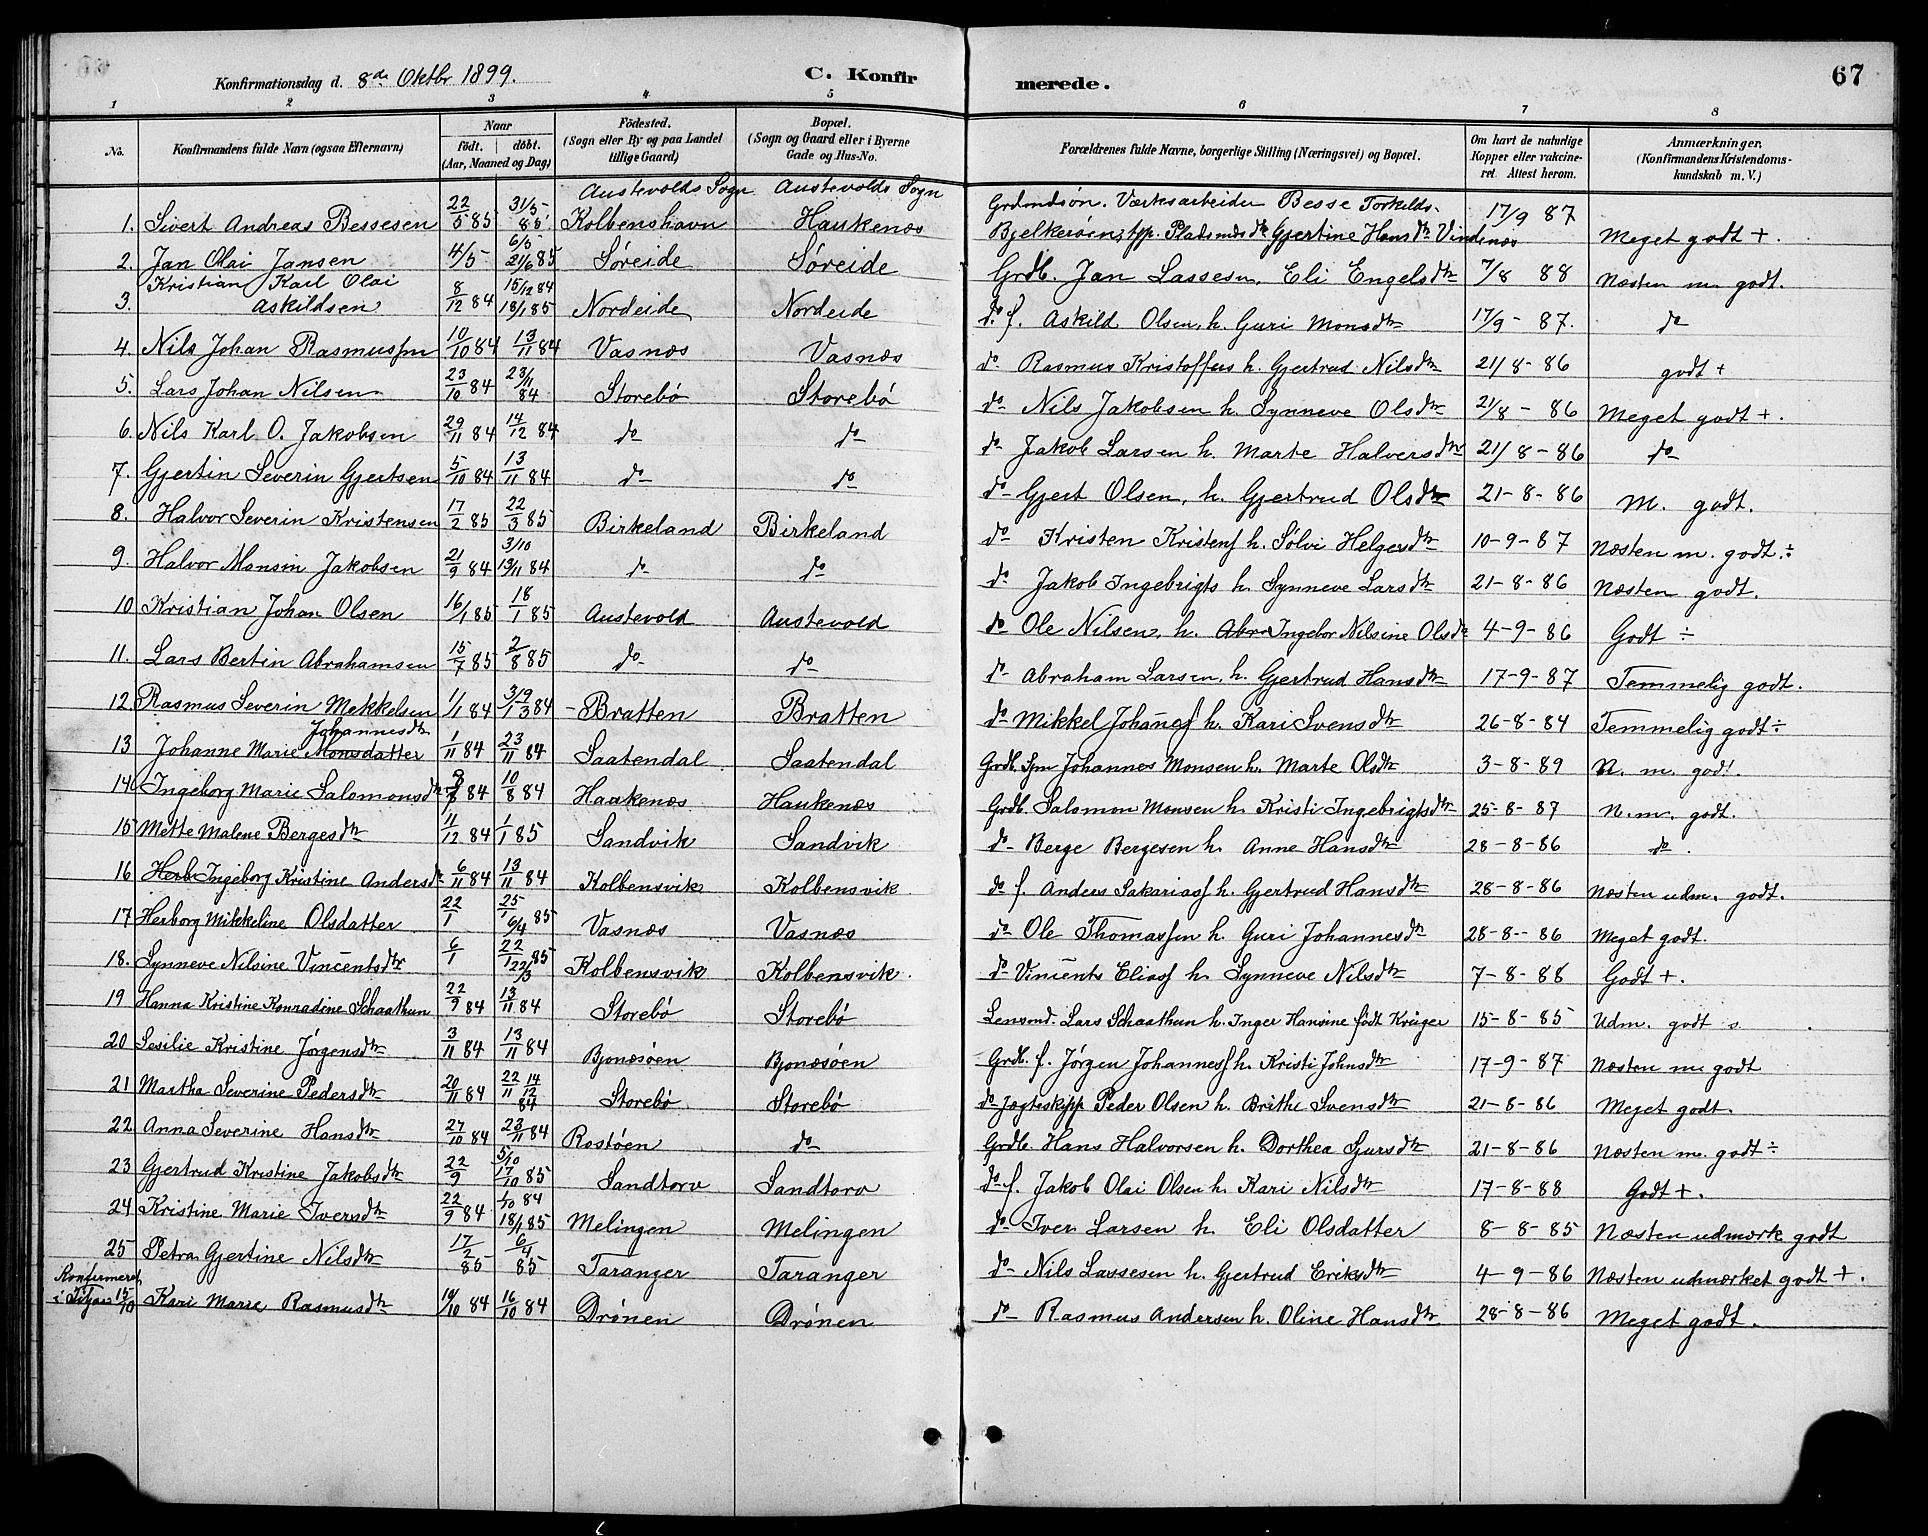 Konfirmationsdag d. 8de Oktbr 1899. C. Konfirmerede. 67
1 2 3 4 5 6 7 8
No. Konfirmandens fulde Navn (ogsaa Efternavn) Naar födt. döbt. (Aar, Maaned og Dag) Födested. (Sogn eller By og paa Landet tillige Gaard) Bopæl. (Sogn og Gaard eller i Byerne Gade og Hus-No. Forældrenes fulde Navne, borgerlige Stilling (Næringsvei) og Bopæl. Om havt de naturlige Kopper eller vaccineret. Attest herom. Anmærkninger. (Konfirmandens Kristendomskundskab m. V.)
Austevolds Sogn Austevolds Sogn
1. Sivert Andreas Bessesen 22/5 85 31/5 85 Kolbenshavn Haukenæs Grdmdsøn. Værksarbeider Besse Torkilds. Bjelkerøen, tpp. Pladsmds dtr Gjertine Hansdtr Vindenæs 17/9 87 Meget godt +.
2. Jan Olai Jansen 4/5 6/5 21/6 85 Søreide Søreide Grdb. Jan Lassesen, Eli Engelsdtr 7/8 88 Næsten m. godt.
3. Kristian Karl Olai Askildsen 8/12 84 15/12 84 18/1 85 Nordeide Nordeide do f. Askild Olsen, h. Guri Monsdtr 17/9 - 87. do
4. Nils Johan Rasmussen 10/10 84 13/11 84 Vasnæs Vasnæs do Rasmus Kristoffers h. Gjertrud Nilsdtr 21/8 - 86 godt +
5. Lars Johan Nilsen 23/10 84 23/11 84 Storebø Storebø do Nils Jakobsen h. Synneve Olsdtr 21/8 - 86 Meget godt +.
6. Nils Karl O. Jakobsen 29/11 84 14/12 84 do do do Jakob Larsen h. Marte Halversdtr 21/8 - 86 do
7. Gjertin Severin Gjertsen 5/10 84 13/11 84 do do do Gjert Olsen, h. Gjertrud Olsdtr 21-8-86 M. godt.
8. Halvor Severin Kristensen 17/2 85 22/3 85 Birkeland Birkeland do Kristen Kristens h. Sølvi Helgesdtr 10-9-87 Næsten m. godt ÷
9. Halvor Monsin Jakobsen 21/9 84 3/10 13/11 84 do do do Jakob Ingebrigts h. Synneve Larsdtr 21-8-86 Næsten godt.
10 Kristian Johan Olsen 16/1 85 18/1 85 Austevold Austevold do Ole Nilsen, h. Abra Ingebor Nilsine Olsdtr 4-9-86 Godt ÷
11. Lars Bertin Abrahamsen 15/7 85 2/8 85 do do do Abraham Larsen, h. Gjertrud Hansdtr 17-9-87 Temmelig godt.
12 Rasmus Severin Mekkelsen 1/1 84 3/1 9/3 84 Bratten Bratten do Mikkel Johannes h. Kari Svensdtr 26-8-84 Temmelig godt ÷
13 Johanne Marie Monsdatter Johannesdtr 1/11 84 23/11 84 Saatendal Saatendal Grdb. Spm Johannes Monsen h. Marte Olsdtr 3-8-89 N. m. godt.
14 Ingeborg Marie Salomonsdtr 84 10/8 84 Haukenæs Haukenæs Grdb. Salomon Monsen h. Kristi Ingebrigtsdtr 25-8-87 N. m. godt.
15 Mette Malene Bergesdtr 11/12 84 1/1 85 Sandvik Sandvik do Berge Bergesen h. Anne Hansdtr 28-8-86 do.
16 Herb Ingeborg Kristine Andersdtr 6/11 84 13/11 84 Kolbensvik Kolbensvik do f. Anders Sakarias h. Gjertrud Hansdtr 28-8-86 Næsten udm. godt.
17 Herborg Mikkeline Olsdatter 22/1 25/1 6/4 85 Vasnæs Vasnæs do Ole Thomassen h. Guri Johannesdtr 28-8-86 Meget godt.
18. Synneve Nilsine Vincentsdtr 6/1 22/1 22/3 85 Kolbensvik Kolbensvik. do Vincents Elias h. Synneve Nilsdtr 7-8-88 Godt +.
19 Hanna Kristine Konradine Schaathun 22/9 84 13/11 84 Storebø Storebø Lensmd. Lars Schaathun h. Inger Hansine født Krüger 15-8-85 Udm. godt
20 Sesilie Kristine Jørgensdtr 3/11 84 13/11 84 Bjonæsøen Bjonæsøen Grdb. f. Jørgen Johannes h. Kristi Johnsdtr 17-9-87 Næsten m. godt
21 Martha Severine Pedersdtr 20/11 84 22/11 14/12 84 Storebø Storebø do Jagteskipp Peder Olsen h. Brithe Svensdtr 21-8-86 Meget godt.
22 Anna Severine Hansdtr 27/10 84 23/11 84 Rostøen do Grdb. Hans Halvorsen h. Dorthea Sjursdtr 21-8-86 Næsten m. godt ÷
23 Gjertrud Kristine Jakobsdtr 22/9 5/10 17/10 85 Sandtorv Sandtorv do f. Jakob Olai Olsen h. Kari Nilsdtr 17-8-88 Godt +.
24 Kristine Marie Iversdtr 22/9 84 1/10 84 18/1 85 Melingen Melingen do Iver Larsen h. Eli Olsdatter 8-8-85 Næsten udmærk godt
25 Petra Gjertine Nilsdtr 17/2 85 6/4 85 Taranger Taranger do Nils Lassesen h. Gjertrud Eriksdtr 4-9-86 Næsten udmærket godt +.
Konfirmeret i 15/10 Kari Marie Rasmusdtr 10/10 84 16/10 84 Drönen Drönen do Rasmus Andersen h. Oline Hansdtr 28-8-86 Meget godt.